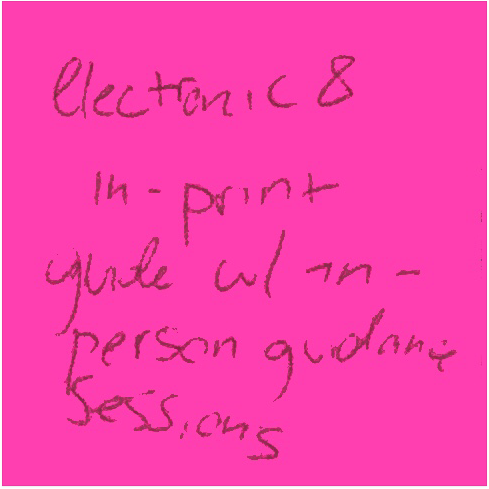 electronic &
in-print
guide w/ in-
person guidance
sessions